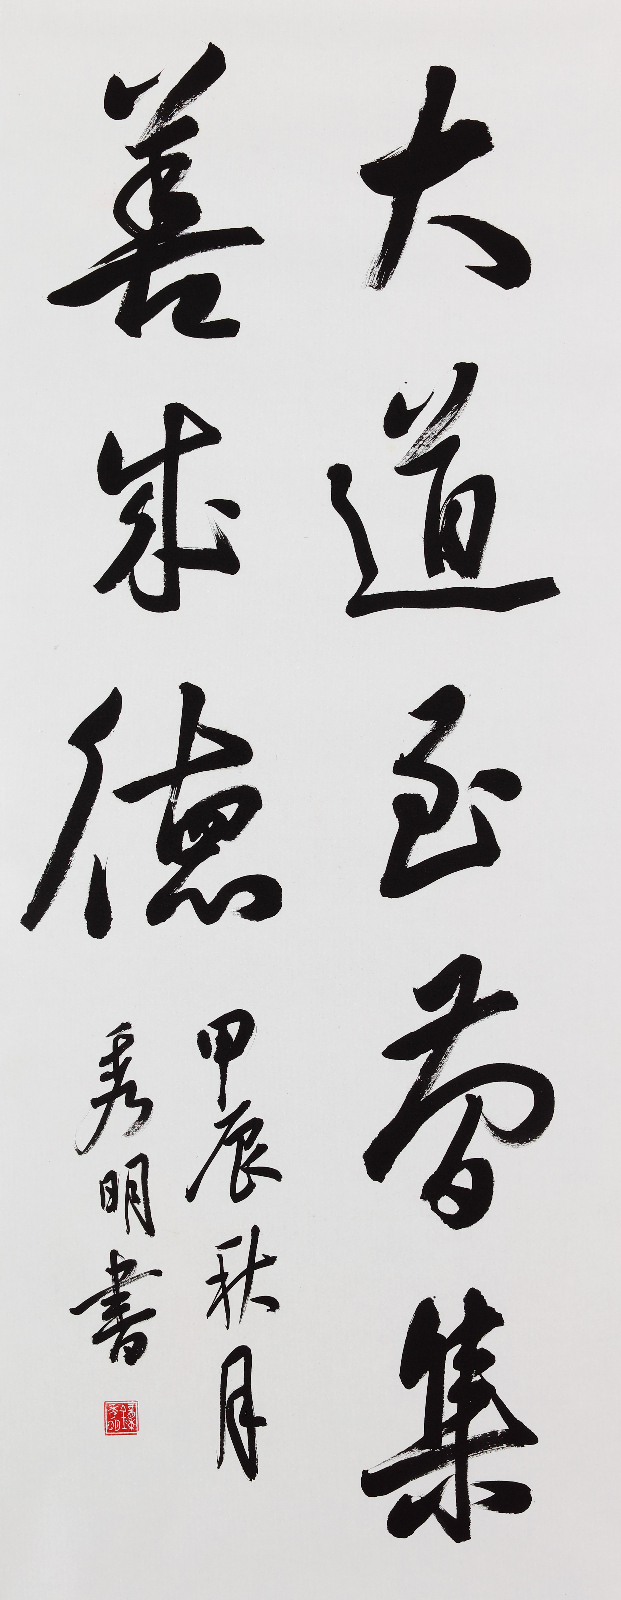 大道至簡集
善成德
甲辰秋月
秀明書